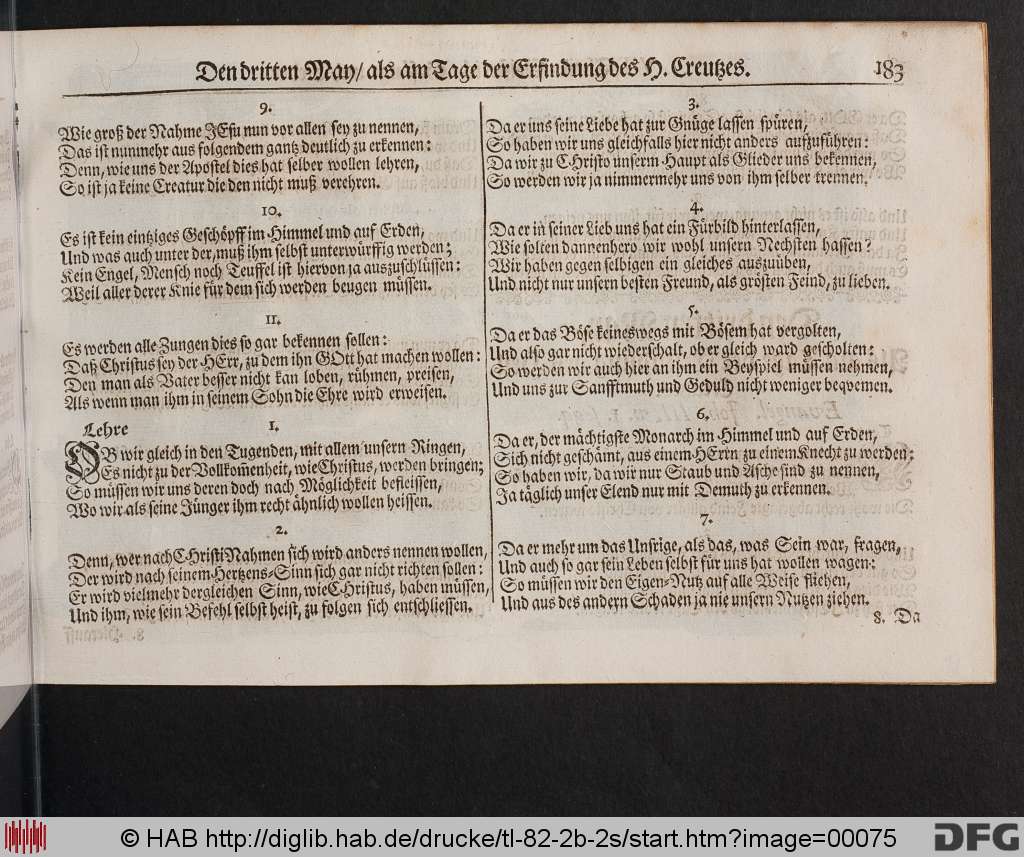 Den dritten May/ als am Tage der Erfindung des H. Creutzes. 183
9.
Wie groß der Nahme JEsu nun vor allen sey zu nennen,
Das ist nunmehr aus folgendem gantz deutlich zu erkennen:
Denn, wie uns der Apostel dies hat selber wollen lehren,
So ist ja keine Creatur die den nicht muß verehren.
10.
Es ist kein eintziges Geschöpff im Himmel und auf Erden,
Und was auch unter der, muß ihm selbst unterwürffig werden;
Kein Engel, Mensch noch Teuffel ist hiervon ja auszuschlüssen:
Weil aller derer Knie für dem sich werden beugen müssen.
11.
Es werden alle Zungen dies so gar bekennen sollen:
Daß Christus sey der HErr, zu dem ihn GOtt hat machen wollen:
Den man als Vater besser nicht kan loben, rühmen, preisen,
Als wenn man ihm in seinem Sohn die Ehre wird erweisen.
Lehre 1.
OB wir gleich in den Tugenden, mit allem unsern Ringen,
Es nicht zu der Vollkom̅enheit, wie Christus, werden bringen;
So müssen wir uns deren doch nach Möglichkeit befleissen,
Wo wir als seine Jünger ihm recht ähnlich wollen heissen.
2.
Denn, wer nach CHristi Nahmen sich wird anders nennen wollen,
Der wird nach seinem Hertzens-Sinn sich gar nicht richten sollen:
Er wird vielmehr dergleichen Sinn, wie CHristus, haben müssen,
Und ihm, wie sein Befehl selbst heist, zu folgen sich entschliessen.
3.
Da er uns seine Liebe hat zur Gnüge lassen spüren,
So haben wir uns gleichfalls hier nicht anders aufzuführen:
Da wir zu CHristo unserm Haupt als Glieder uns bekennen,
So werden wir ja nimmermehr uns von ihm selber trennen.
4.
Da er in seiner Lieb uns hat ein Fürbild hinterlassen,
Wie solten dannenhero wir wohl unsern Nechsten hassen?
Wir haben gegen selbigen ein gleiches auszuüben,
Und nicht nur unsern besten Freund, als grösten Feind, zu lieben.
5.
Da er das Böse keineswegs mit Bösem hat vergolten,
Und also gar nicht wiederschalt, ob er gleich ward gescholten:
So werden wir auch hier an ihm ein Beyspiel müssen nehmen,
Und uns zur Sanfftmuth und Geduld nicht weniger beqvemen.
6.
Da er, der mächtigste Monarch im Himmel und auf Erden,
Sich nicht geschämt, aus einem HErrn zu einem Knecht zu werden:
So haben wir, da wir nur Staub und Asche sind zu nennen,
Ja täglich unser Elend nur mit Demuth zu erkennen.
7.
Da er mehr um das Unsrige, als das, was Sein war, fragen,
Und auch so gar sein Leben selbst für uns hat wollen wagen:
So müssen wir den Eigen-Nutz auf alle Weise fliehen,
Und aus des andern Schaden ja nie unsern Nutzen ziehen.
8. Da
© HAB http://diglib.hab.de/drucke/tl-82-2b-2s/start.htm?image=00075
DFG